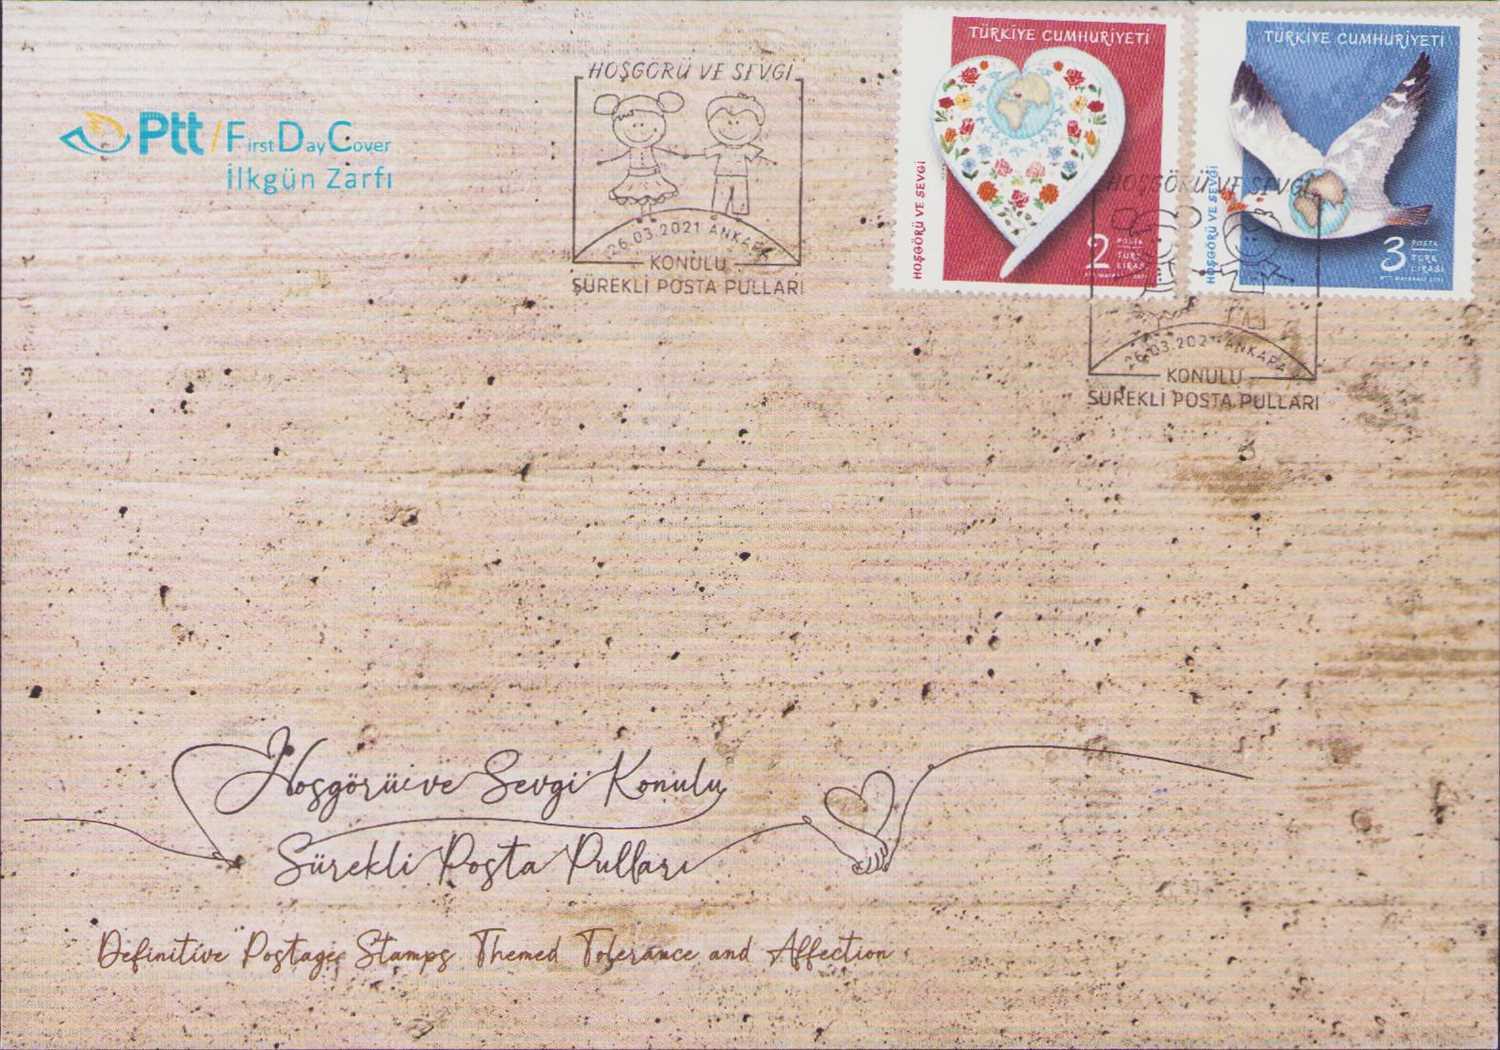 Ptt / First Day Cover
İlkgün Zarfı
HOŞGÖRÜ VE SEVGİ
26.03.2021 ANKARA
KONULU
SÜREKLİ POSTA PULLARI
TÜRKİYE CUMHURİYETİ
HOŞGÖRÜ VE SEVGİ
2 POSTA
TÜRK
LİRASI
TÜRKİYE CUMHURİYETİ
HOŞGÖRÜ VE SEVGİ
3 POSTA
TÜRK
LİRASI
HOŞGÖRÜ VE SEVGİ
26.03.2021 ANKARA
KONULU
SÜREKLİ POSTA PULLARI
Hoşgörü ve Sevgi Konulu
Sürekli Posta Pulları
Definitive Postage Stamps Themed Tolerance and Affection